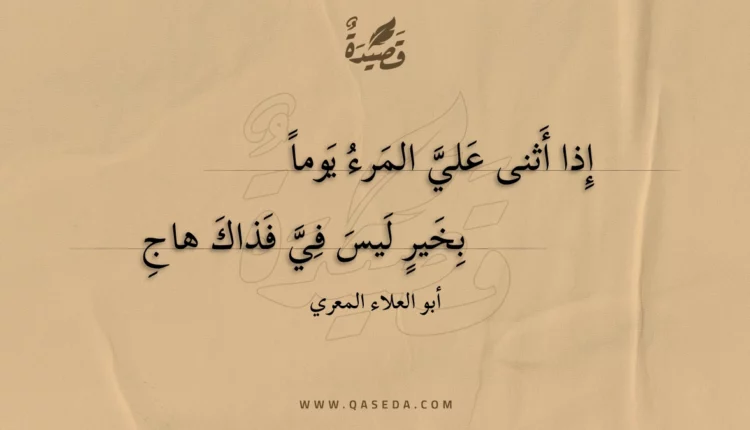 قَصِيدَةٌ
إِذا أَثنى عَليَّ المَرءُ يَوماً
بِخَيرٍ لَيسَ فِيَّ فَذاكَ هاجِ
أبو العلاء المعري
WWW.QASEDA.COM